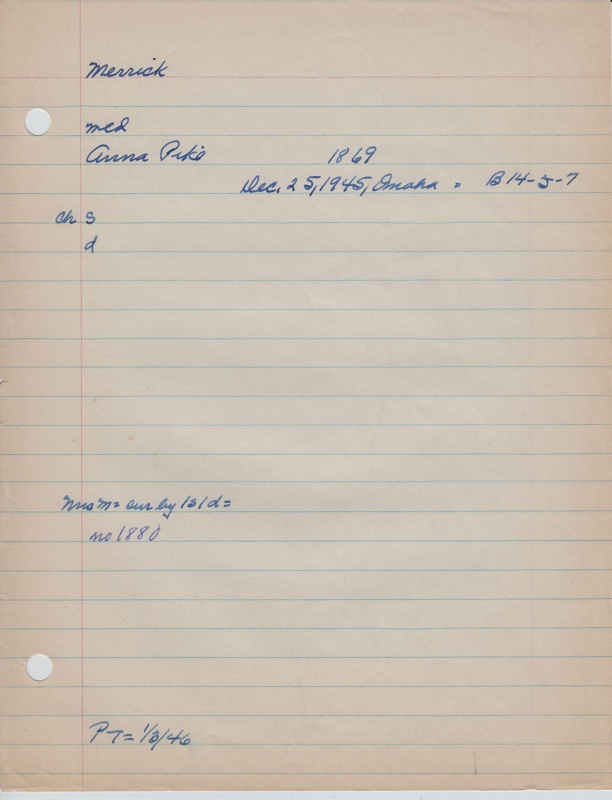 Merrick
med
Anna Pike 1869
Dec. 25, 1945, Omaha = B 14-5-7
ch s
d
Mrs M= sur by 1s 1d=
no 1880
P T= 1/3/46